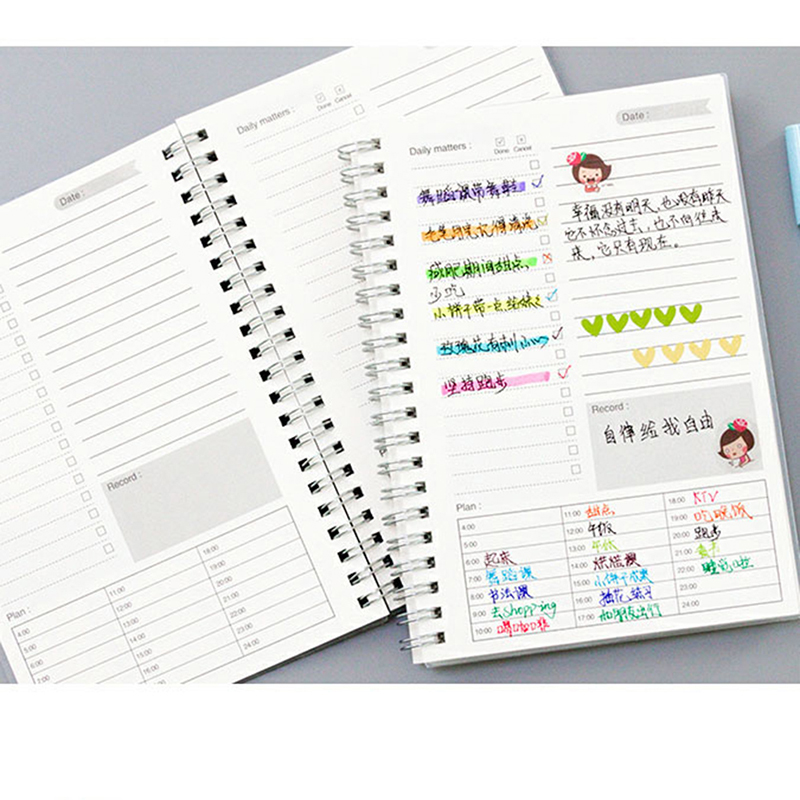 Date :
Record :
Plan :
4:00
5:00
6:00
7:00
11:00
12:00
13:00
14:00
15:00
16:00
18:00
19:00
20:00
21:00
22:00
23:00
24:00
Daily matters :
Done Cancel
Daily matters :
Done Cancel
舞蹈课带舞鞋
减肥期间甜点
少吃
小饼干带一点给
坚持跑步
Date :
幸福没有明天,也没有昨天
它不怀念过去,也不向往未
来,它只有现在。
Record :
自律给我自由
Plan :
4:00
5:00
6:00 起床
7:00 舞蹈课
8:00 书法课
9:00 去shopping
10:00 喝咖啡
11:00 甜点
12:00 午饭
13:00 午休
14:00 烘焙课
15:00 小饼干成果
16:00 插花练习
17:00 和朋友
18:00 KTV
19:00 吃晚饭
20:00 跑步
21:00
22:00 睡觉啦
23:00
24:00